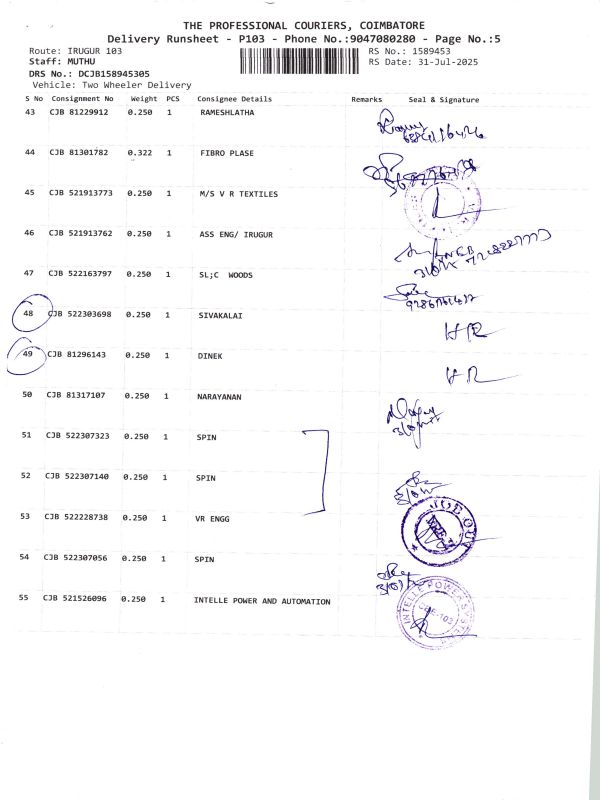 THE PROFESSIONAL COURIERS, COIMBATORE
Delivery Runsheet - P103 - Phone No.:9047080280 - Page No.:5
Route: IRUGUR 103 RS No.: 1589453
Staff: MUTHU RS Date: 31-Jul-2025
DRS No.: DCJB158945305
Vehicle: Two Wheeler Delivery
S No Consignment No Weight PCS Consignee Details Remarks Seal & Signature
43 CJB 81229912 0.250 1 RAMESHLATHA
44 CJB 81301782 0.322 1 FIBRO PLASE
45 CJB 521913773 0.250 1 M/S V R TEXTILES
46 CJB 521913762 0.250 1 ASS ENG/ IRUGUR
47 CJB 522163797 0.250 1 SL;C WOODS
48 CJB 522303698 0.250 1 SIVAKALAI
49 CJB 81296143 0.250 1 DINEK
50 CJB 81317107 0.250 1 NARAYANAN
51 CJB 522307323 0.250 1 SPIN
52 CJB 522307140 0.250 1 SPIN
53 CJB 522228738 0.250 1 VR ENGG
54 CJB 522307056 0.250 1 SPIN
55 CJB 521526096 0.250 1 INTELLE POWER AND AUTOMATION